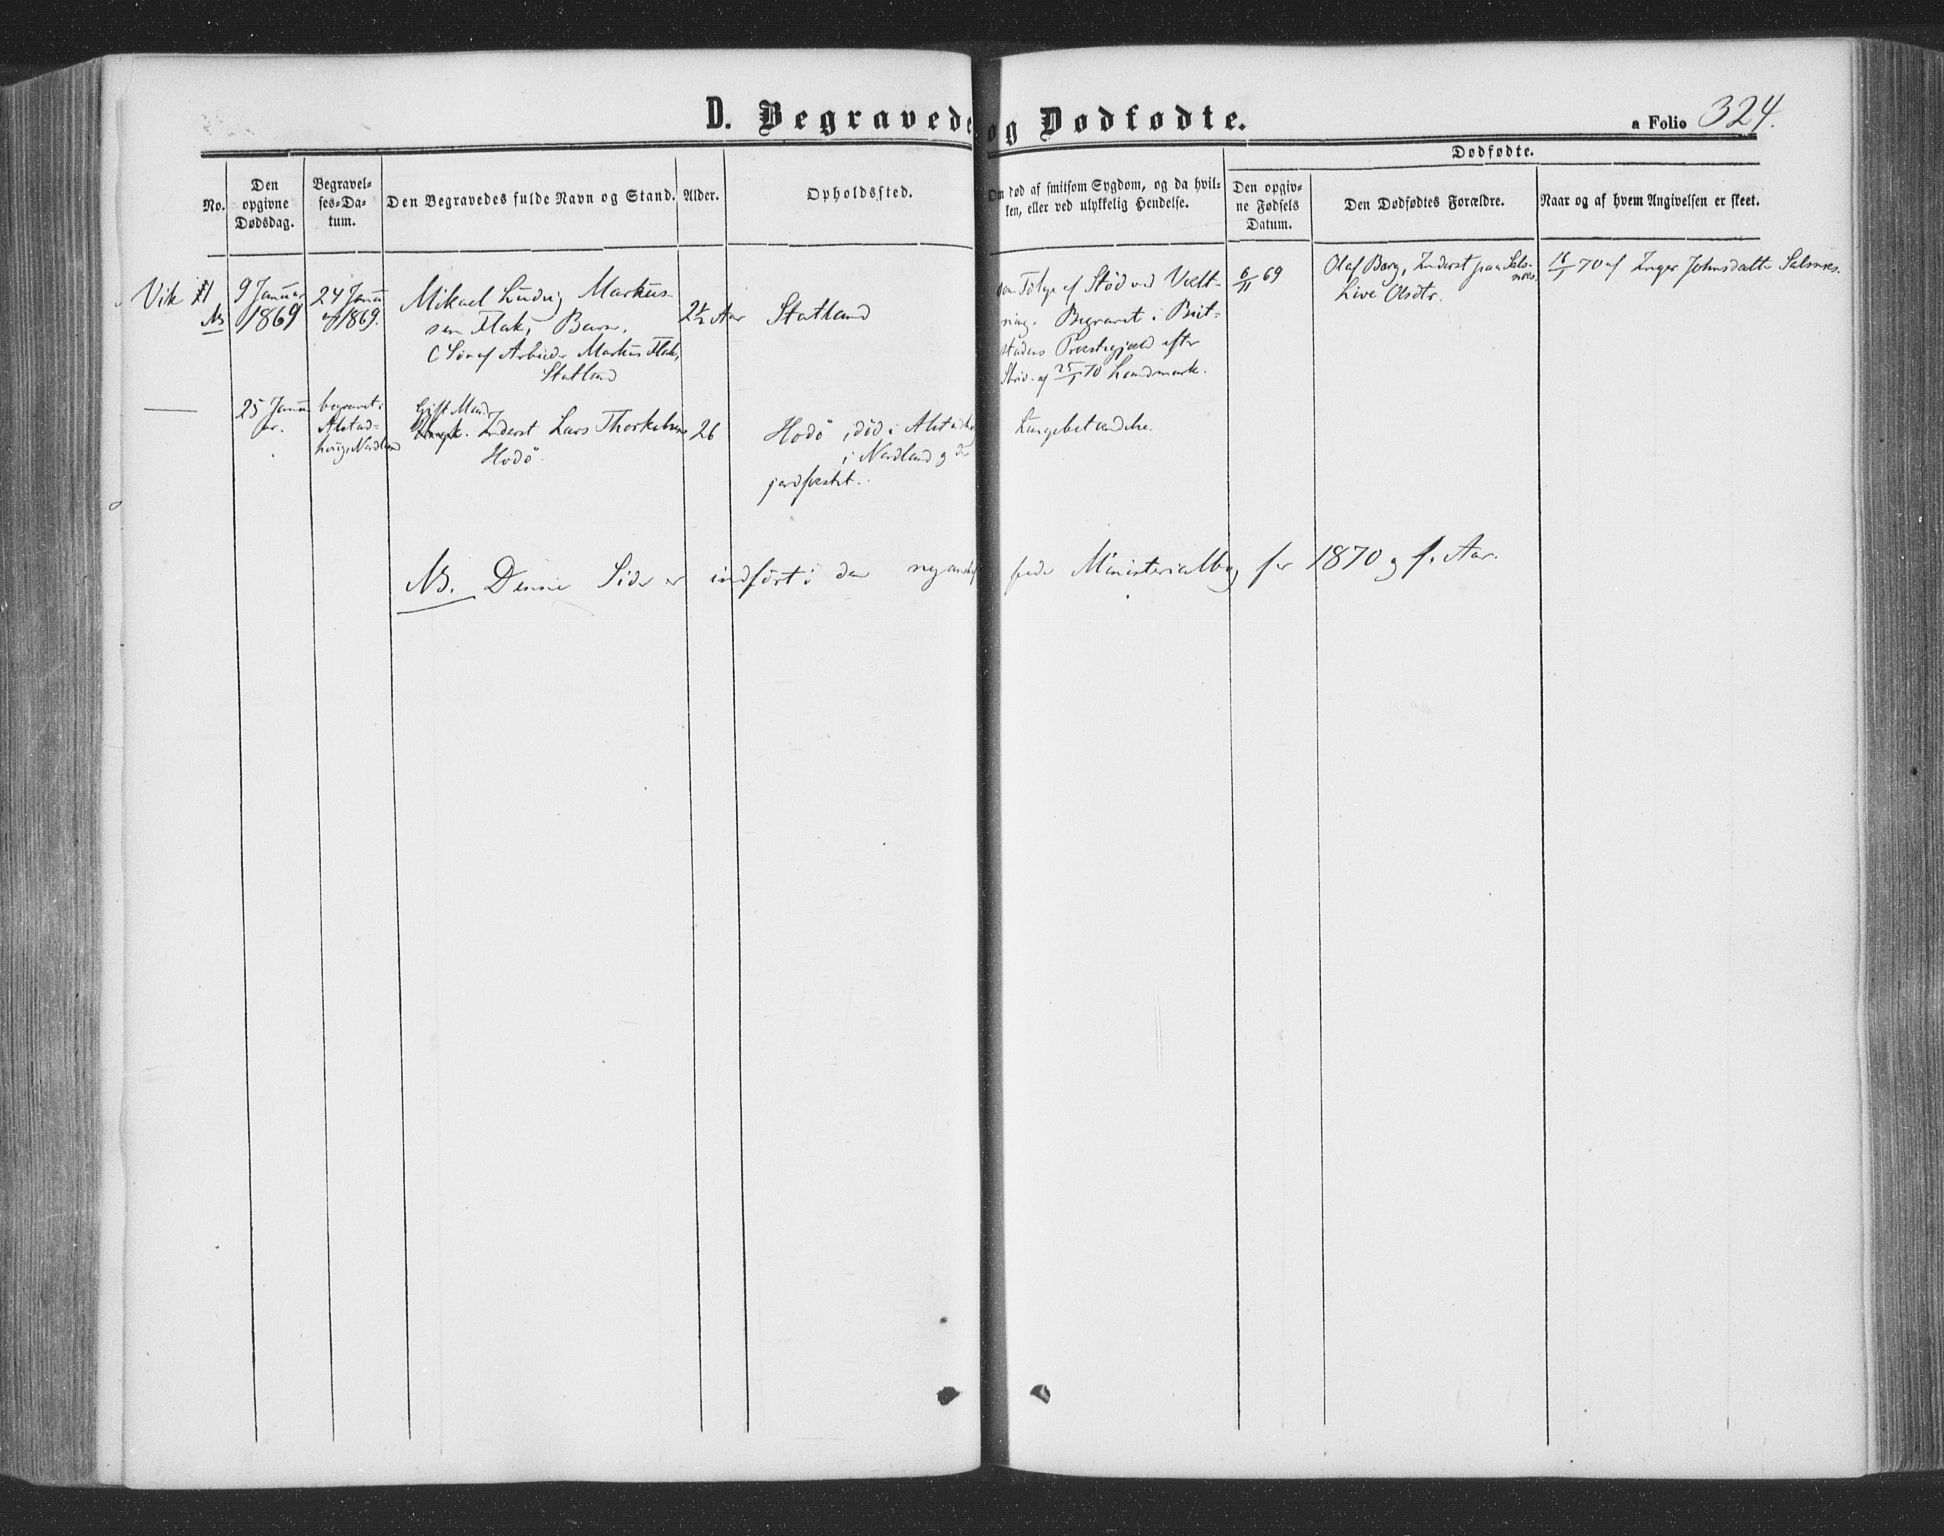 D. Begravede og Dødfødte.
a Folio 324.
No.
Den opgivne Dødsdag.
Begravelses-Datum.
Den Begravedes fulde Navn og Stand.
Alder.
Opholdssted.
Om død af smitsom Sygdom, og da hvilken, eller ved ulykkelig Hendelse.
Dødfødte.
Den opgivne Fødsels Datum.
Den Dødfødtes Forældre.
Naar og af hvem Angivelsen er skeet.
Vik 1
NB
9 Januar
1869
24 Janu
1869.
Mikael Ludvig Markus-
sen Flak, Barn.
(Søn af Arbeider Markus Flak,
Statland
2½ Aar
Statland
Følge af Stød ved Vælt-
ning. Begravet i Beit-
stadens Præstegjæld efter
Skriv. af 25/1 70 Landmark.
6/11 69
Olaf Berg, Inderst paa Sals-
næs.
Live Olsdtr.
16/1 70 af Inger Johnsdatt. Salsnæs.
25 Janu
ar.
begravet i
Alstad-
houg, Nordland
Gift Mand
Inderst Lars Thorkelsen
Hodø
26
Hodø, død i Alstadhoug
i Nordland og der
jordfæstet.
Lungebetændelse.
NB. Denne Side er indført i den nyanskaf
fede Ministerialbog for 1870 og f. Aar.